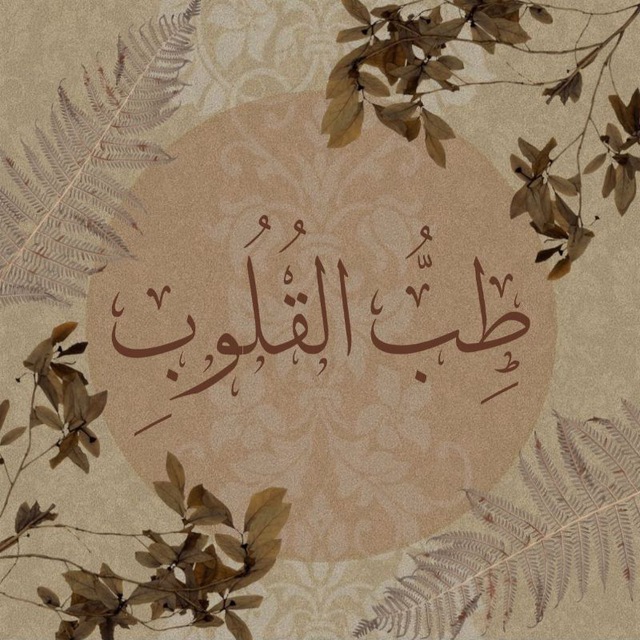 طِبُّ القُلُوبِ